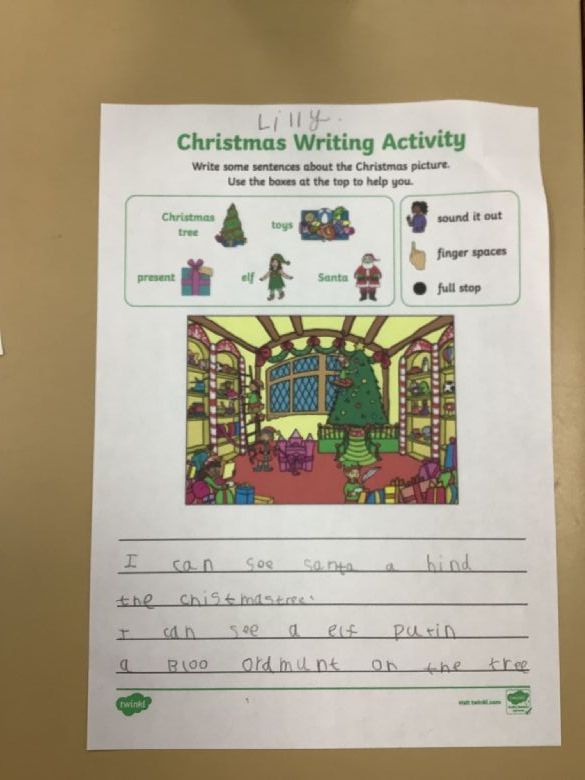 Lilly.
Christmas Writing Activity
Write some sentences about the Christmas picture.
Use the boxes at the top to help you.
Christmas tree
toys
present
elf
Santa
sound it out
finger spaces
full stop
I can see santa a hind
the chistmastree.
I can see a elf putin
a Bloo ordmunt on the tree
twinkl
visit twinkl.com